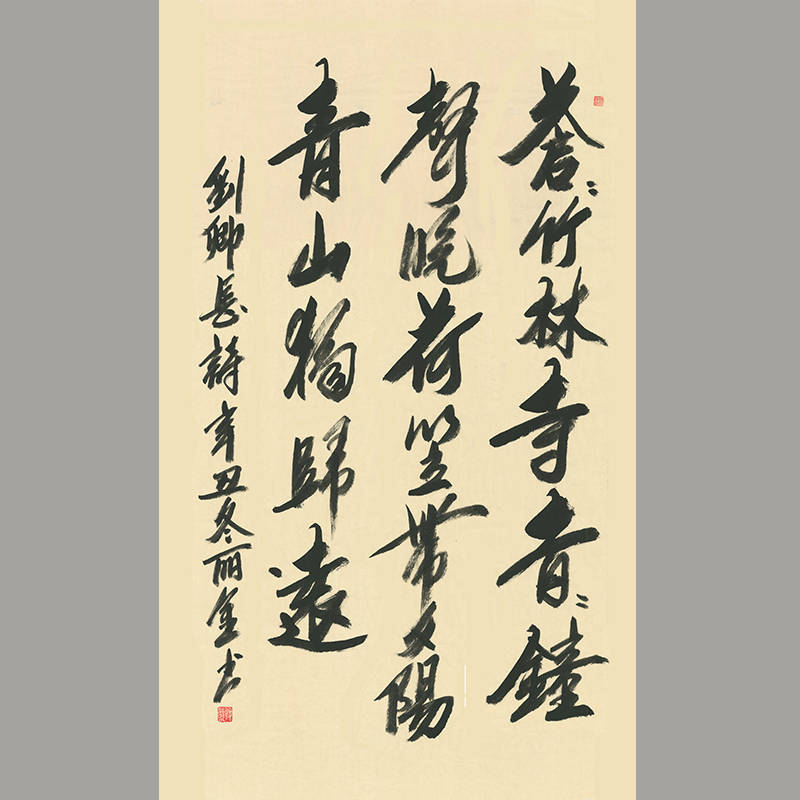 蒼〻竹林寺杳〻鐘
聲晚荷笠帶夕陽
青山獨歸遠
劉卿長詩辛丑冬丽金书